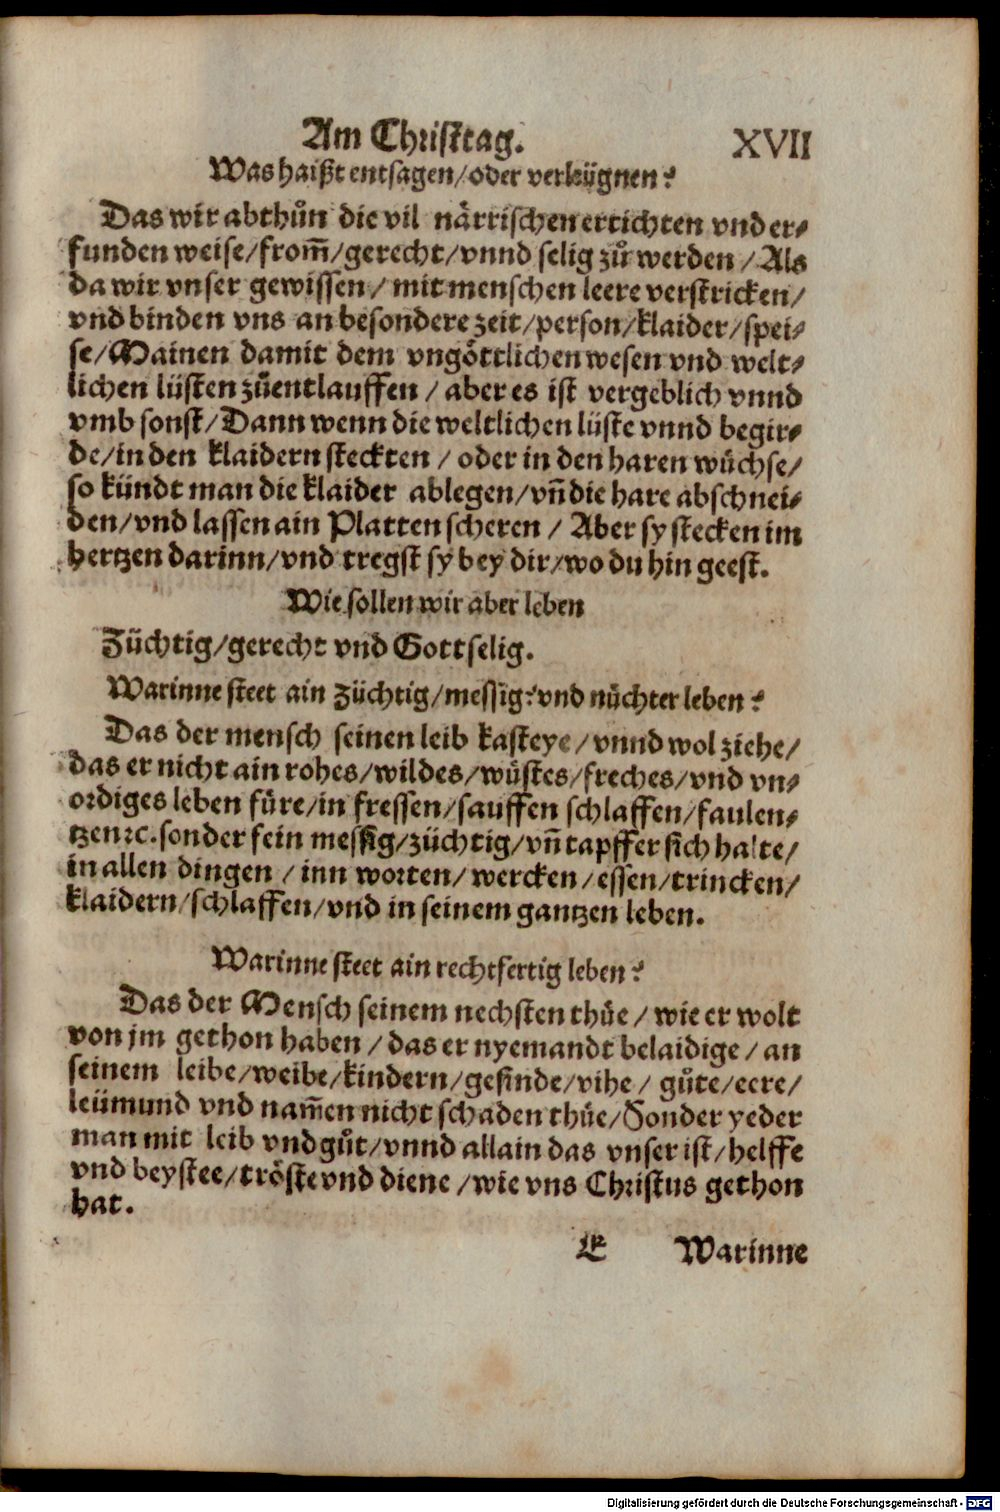 Am Christtag. XVII
Was haißt entsagen/oder verleügnen?
Das wir abthůn die vil närrischen ertichten vnd er⸗
funden weise/from̃/gerecht/vnnd selig zů werden/Als
da wir vnser gewissen/mit menschen leere verstricken/
vnd binden vns an besondere zeit/person/klaider/spei⸗
se/Mainen damit dem vngöttlichen wesen vnd welt⸗
lichen lüsten zůentlauffen/aber es ist vergeblich vnnd
vmb sonst/Dann wenn die weltlichen lüste vnnd begir⸗
de/in den klaidern steckten/oder in den haren wüchse/
so kündt man die klaider ablegen/vñ die hare abschnei⸗
den/vnd lassen ain Platten scheren/Aber sy stecken im
hertzen darinn/vnd tregst sy bey dir/wo du hin geest.
Wie sollen wir aber leben
Züchtig/gerecht vnd Gottselig.
Warinne steet ain züchtig/messig/vnd nüchter leben?
Das der mensch seinen leib kasteye/vnnd wol ziehe/
das er nicht ain rohes/wildes/wüstes/freches/vnd vn⸗
ordiges leben füre/in fressen/sauffen schlaffen/faulen⸗
tzen ꝛc. sonder fein messig/züchtig/vñ tapffer sich halte/
in allen dingen/inn worten/wercken/essen/trincken/
klaidern/schlaffen/vnd in seinem gantzen leben.
Warinne steet ain rechtfertig leben?
Das der Mensch seinem nechsten thüe/wie er wolt
von jm gethon haben/das er nyemandt belaidige/an
seinem leibe/weibe/kindern/gesinde/vihe/gůte/eere/
leümund vnd nam̃en nicht schaden thüe/Sonder yeder
man mit leib vnd gůt/vnnd allain das vnser ist/helffe
vnd beystee/tröste vnd diene/wie vns Christus gethon
hat.
E Warinne
Digitalisierung gefördert durch die Deutsche Forschungsgemeinschaft - DFG